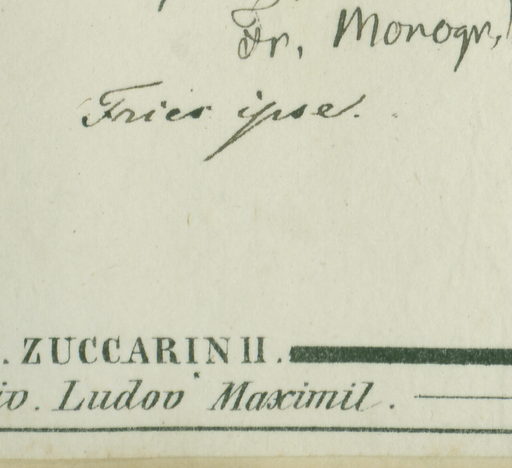 Fr. Monogr.
Fries ipse.
. ZUCCARINII.
iv. Ludov. Maximil.